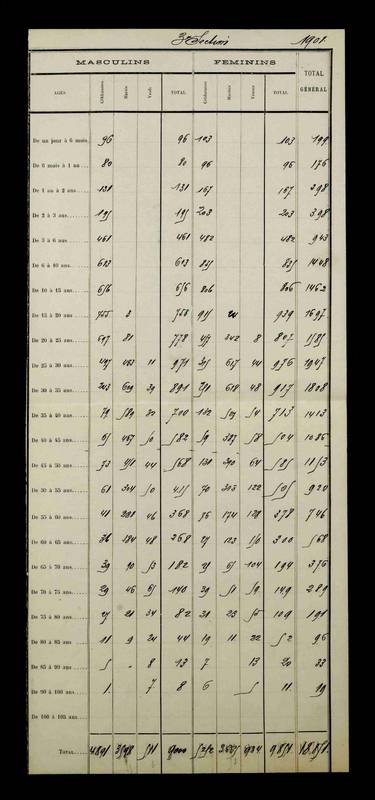 3e Section 1901.
MASCULINS FEMININS TOTAL GÉNÉRAL
AGES Célibataires Mariés Veufs TOTAL Célibataires Mariées Veuves TOTAL
De un jour à 6 mois 96 96 103 103 199
De 6 mois à 1 an 80 80 96 96 176
De 1 an à 2 ans 131 131 167 167 298
De 2 à 3 ans 195 195 203 203 398
De 3 à 6 ans 461 461 482 482 943
De 6 à 10 ans 613 613 835 835 1448
De 10 à 15 ans 656 656 806 806 1462
De 15 à 20 ans 755 3 758 915 24 939 1697
De 20 à 25 ans 697 81 778 457 342 8 807 1585
De 25 à 30 ans 497 463 11 971 315 617 44 976 1947
De 30 à 35 ans 243 609 39 891 251 618 48 917 1808
De 35 à 40 ans 79 589 32 700 152 507 54 713 1413
De 40 à 45 ans 65 467 50 582 59 387 58 504 1086
De 45 à 50 ans 73 451 44 568 131 390 64 585 1153
De 50 à 55 ans 61 304 50 415 70 303 122 505 920
De 55 à 60 ans 41 281 46 368 76 174 128 378 746
De 60 à 65 ans 36 184 48 268 27 123 150 300 568
De 65 à 70 ans 39 90 53 182 25 65 104 194 376
De 70 à 75 ans 29 46 65 140 39 51 59 149 289
De 75 à 80 ans 27 21 34 82 31 23 55 109 191
De 80 à 85 ans 11 9 24 44 19 11 22 52 96
De 85 à 90 ans 5 - 8 13 7 13 20 33
De 90 à 100 ans 1. 7 8 6 5 11 19
De 100 à 105 ans
TOTAL 4891 3598 511 9000 9851 18.851